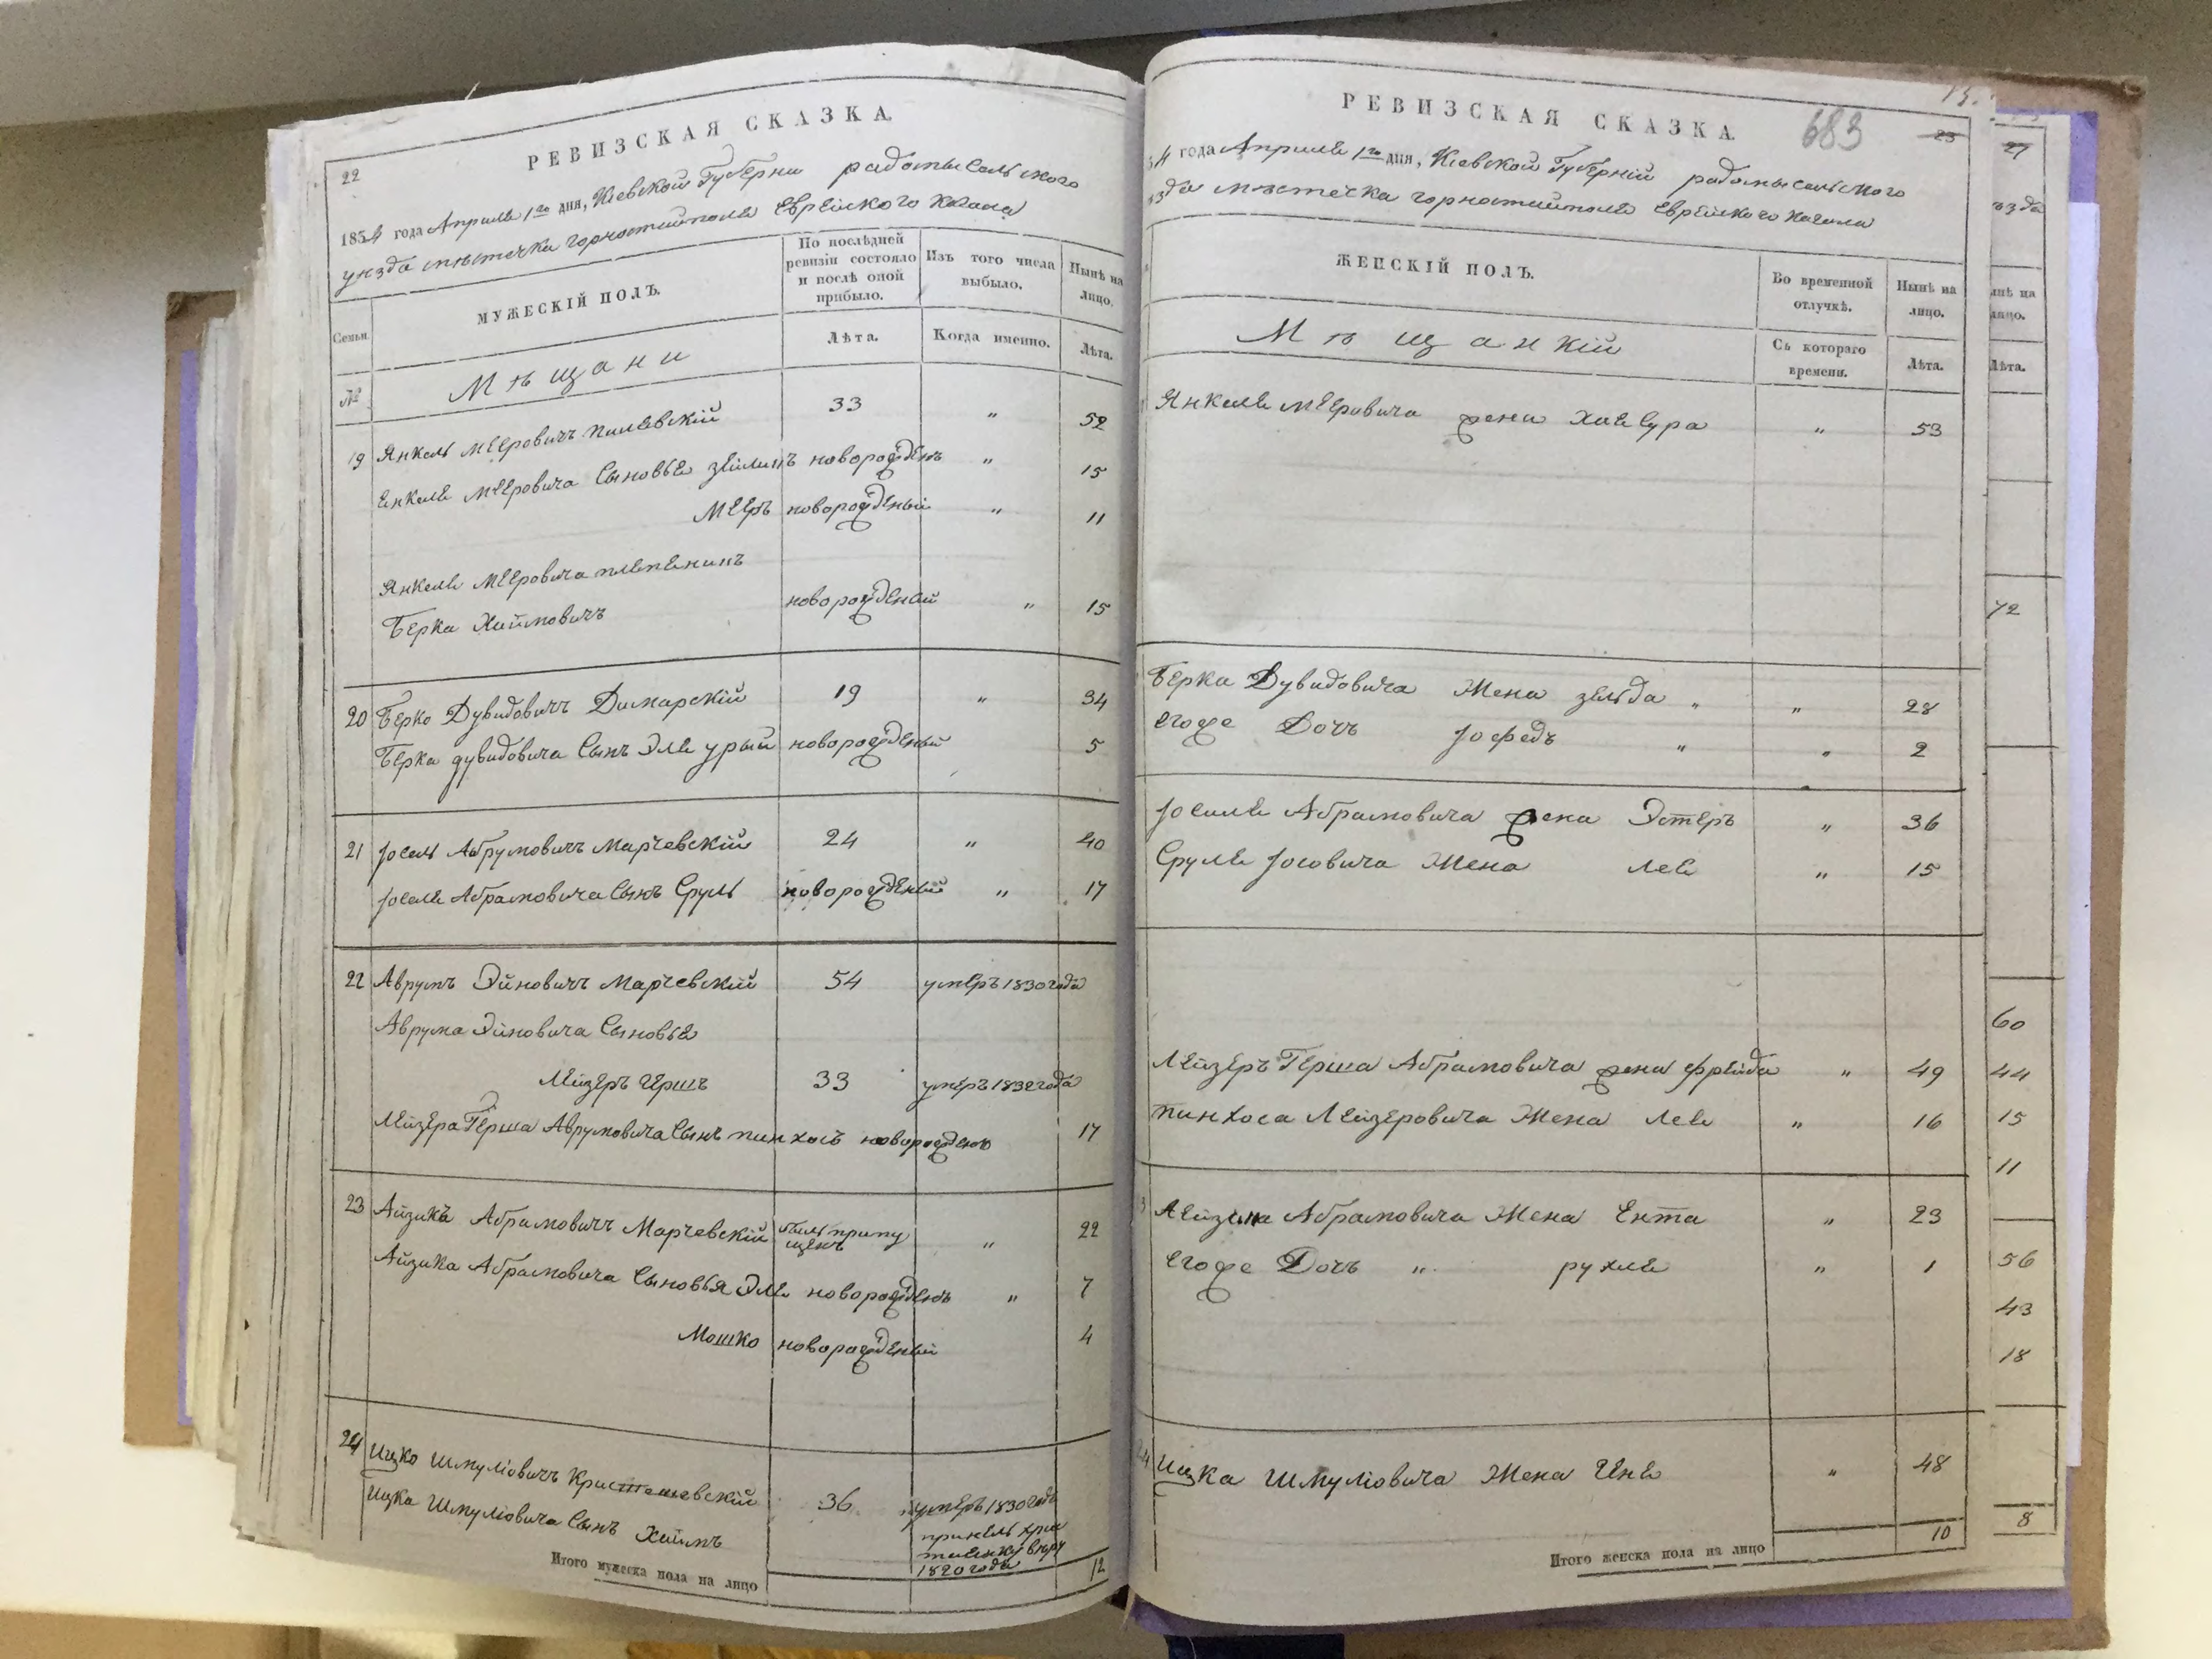 22
РЕВИЗСКАЯ СКАЗКА.
1834 года Апреля 1го дня, Кіевской Губерни радомысльского
уезда мѣстечка горностайполя Еврейского Кагала
Семьи.
МУЖЕСКІЙ ПОЛЪ.
По послѣдней ревизіи состояло и послѣ оной прибыло.
Изъ того числа выбыло.
Нынѣ на лицо.
№
Мѣщани
Лѣта.
Когда именно.
Лѣта.
19 Янкель Мееровичъ 33 " 52
Енкеля Мееровича Сыновья новорожденъ " 15
Мееръ новорожденый " 11
Янкеля Мееровича племеникъ
Берка Хаймовичъ новорожденый " 15
20 Берко Дувидовичъ Димарскій 19 " 34
Берка дувидовича Сынъ Эле урый новорожденый 5
21 Іосель Абрумовичъ Марчевскій 24 " 40
Іоселя Абрамовича Сынъ Сруль новорожденый " 17
22 Аврумъ Эйновичъ Марчевскій 54 умеръ 1830 года
Аврума Эйновича Сыновья
Лейзеръ Гершъ 33 умеръ 1832 года
Лейзера Герша Аврумовича Сынъ пинхосъ новорожденъ 17
23 Айзикъ Абрамовичъ Марчевскій былъ пропу
щенъ " 22
Айзика Абрамовича Сыновья Эля новорожденъ " 7
Мошко новорожденый 4
24 Ицко Шмуліовичъ 36 умеръ 1830 года
Ицка Шмуліовича Сынъ Хаимъ принелъ хрис
тианску веру
1820 года
Итого мужеска пола на лицо 12
13.
РЕВИЗСКАЯ СКАЗКА.
683
23
34 года Апреля 1го дня, Кіевской Губерній радомысльского
езда мѣстечка горностайполя Еврейского Кагала
ЖЕНСКІЙ ПОЛЪ.
Во временной отлучкѣ.
Нынѣ на лицо.
Мѣщанкій
Съ котораго времени.
Лѣта.
Янкеля Мееровича жена Хая Сура " 53
Берка Дувидовича Жена зельда " " 28
Егоже Дочъ Іофедъ " " 2
Іоселя Абрамовича жена Эстеръ " 36
Сруля Іосовича Жена Лея " 15
Лейзеръ Герша Абрамовича жена фрейда " 49
пинхоса Лейзеровича Жена Лея " 16
Абрамовича Жена Ента " 23
Егоже Дочь " рухля " 1
24 Ицка Шмуліовича Жена " 48
Итого женска пола на лицо 10
27
ѣзда
нѣ на
лицо.
Лѣта.
72
60
44
15
11
56
43
18
8